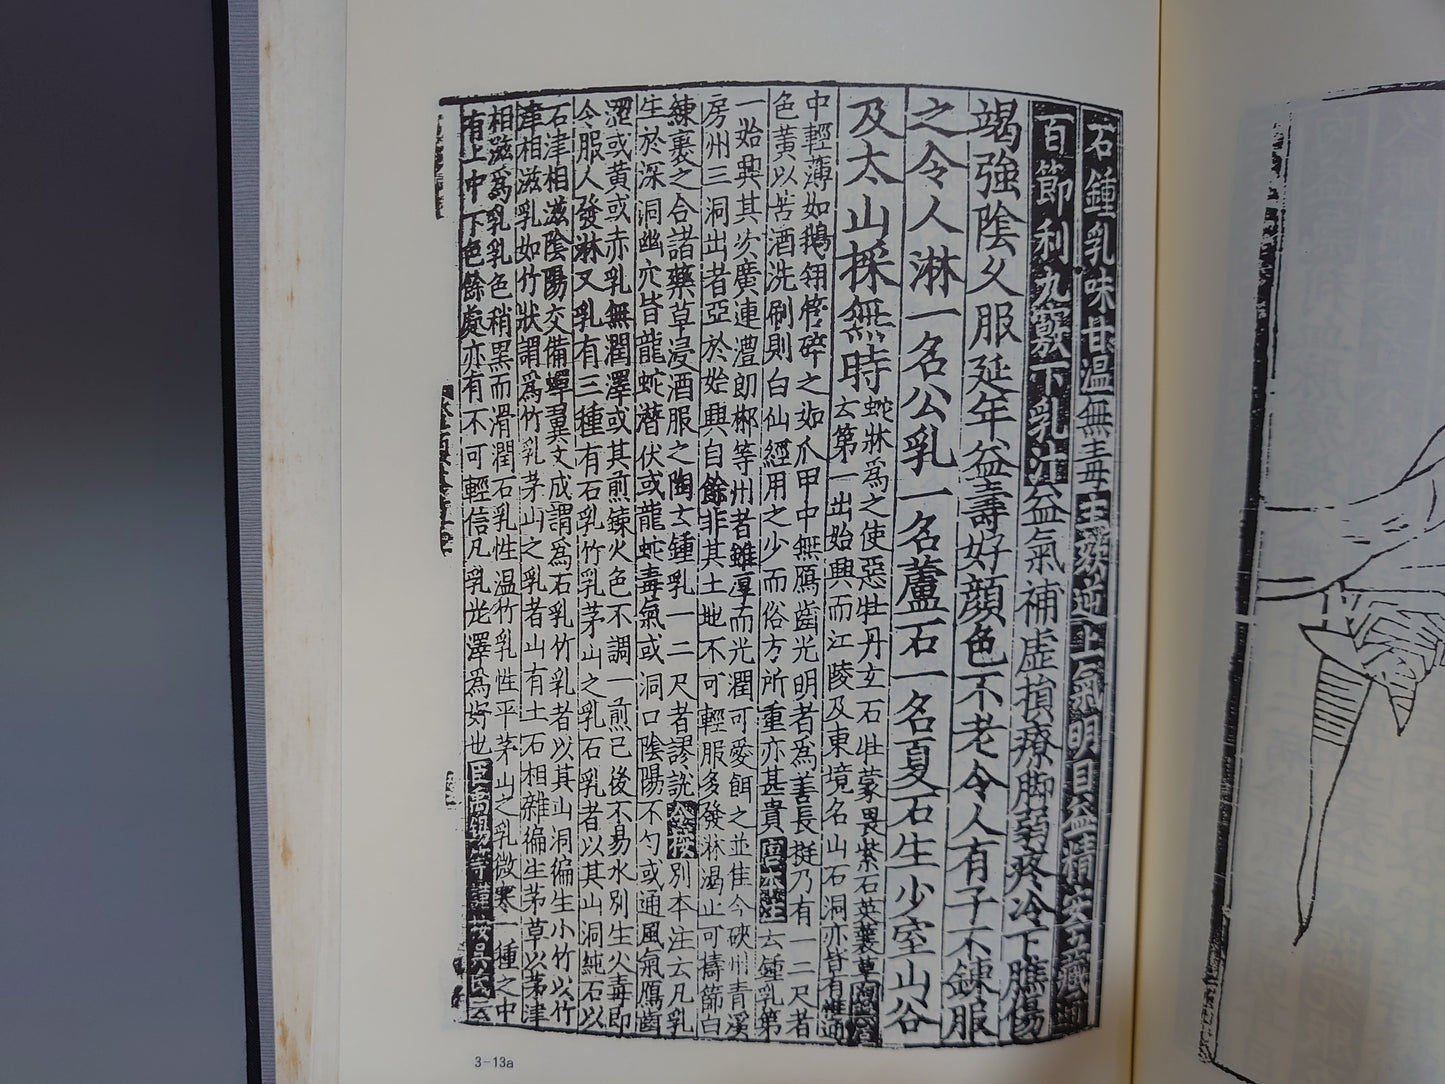 石鍾乳味甘温無毒主欬逆上氣明目益精安五藏通
百節利九竅下乳汁益氣補虛損療脚弱疼冷下膲傷
竭強陰久服延年益壽好顔色不老令人有子不錬服
之令人淋一名公乳一名蘆石一名夏石生少室山谷
及太山採無時
蛇牀為之使惡牡丹玄石牡蒙畏紫石英蘘草
云第一出始興而江陵及東境名山石洞亦皆有惟通
中輕薄如鵝翎管碎之如爪甲中無鴈齒光明者為善長挺乃有一二尺者
色黄以苦酒洗刷則白仙經用之少而俗方所重亦甚貴唐本注云鍾乳第
一始興其次廣連澧朗郴等州者雖厚而光潤可愛餌之並佳今硤州青溪
房州三洞出者亞於始興自餘非其土地不可輕服多發淋渴止可擣篩白
練裹之合諸藥草浸酒服之陶云鍾乳一二尺者謬說今按別本注云凡乳
生於深洞幽穴皆龍蛇潜伏或龍蛇毒氣或洞口陰陽不勻或通風氣鴈齒
澀或黄或赤乳無潤澤或其煎錬火色不調一煎已後不易水別生火毒即
令服人發淋又乳有三種有石乳竹乳茅山之乳石乳者以其山洞純石以
石津相滋陰陽交備蟬翼文成謂為石乳竹乳者以其山洞徧生小竹以竹
津相滋乳如竹狀謂為竹乳茅山之乳者山有土石相雜徧生茅草以茅津
相滋為乳乳色稍黑而滑潤石乳性温竹乳性平茅山之乳微寒一種之中
有上中下色餘處亦有不可輕信凡乳光澤為好也臣禹錫等謹按吳氏云
3-13a